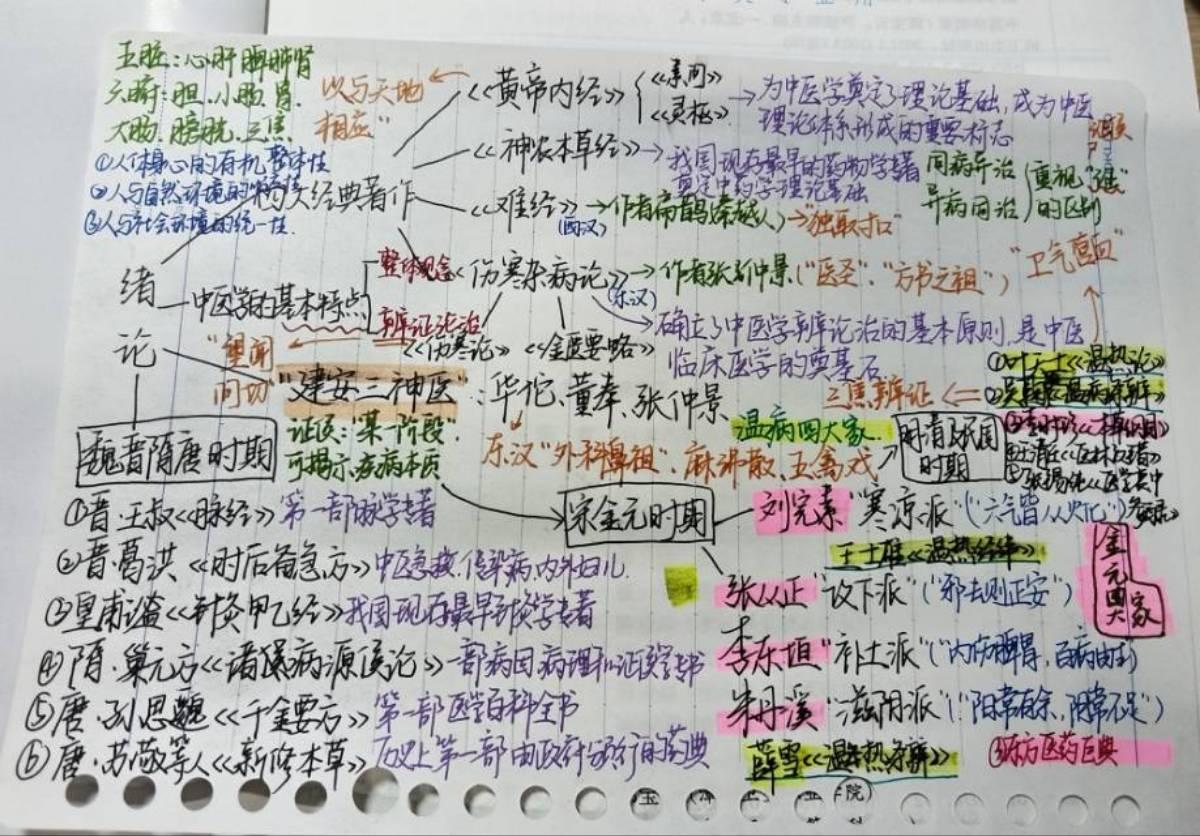 五脏:心肝脾肺肾
六腑:胆.小肠.胃.
大肠.膀胱.三焦
①人体身心的有机整体性
②人与自然环境的
③人与社会环境的统一性
以与天地
相应"
四大经典著作
《黄帝内经》
《素问》
《灵枢》
→为中医学奠定了理论基础,成为中医
理论体系形成的重要标志
《神农本草经》→我国现存最早的药物学专著
奠定中药学理论基础
同病异治
异病同治
重视"证"
的区别
《难经》→作者扁鹊(秦越人)→"独取寸口"
(西汉)
绪
论
中医学的基本特点
整体观念
辨证论治
"望闻
问切"
《伤寒杂病论》→作者张仲景("医圣"."方书之祖")
(东汉)
"卫气营血"
→确立了中医学辨论治的基本原则,是中医
临床医学的奠基石
《伤寒论》《金匮要略》
"建安三神医":华佗、董奉、张仲景
东汉"外科鼻祖".麻沸散、五禽戏
证候:"某一阶段".
可揭示疾病本质
①叶天士《温热论》
三焦辨证
温病四大家
明清民国
时期
③李时珍《本草纲目》
魏晋隋唐时期
①晋·王叔《脉经》第一部脉学专著
②晋·葛洪《肘后备急方》中医急救.传染病.内外妇儿.
③皇甫谧《针灸甲乙经》我国现存最早针灸学专著
④隋·巢元方《诸病源候论》一部病因病理和证候学专书
⑤唐·孙思邈《千金要方》第一部医学百科全书
⑥唐·苏敬等人《新修本草》历史上第一部由政府颁行的药典
宋金元时期
刘完素"寒凉派"("六气皆从火化")
王士雄《温热经纬》
张从正"攻下派"("邪去则正安")
李东垣"补土派"("内伤脾胃,百病由生")
朱丹溪"滋阴派"("阳常有余,阴常不足")
金元四大家
薛雪《湿热条辨》
③东方医药巨典